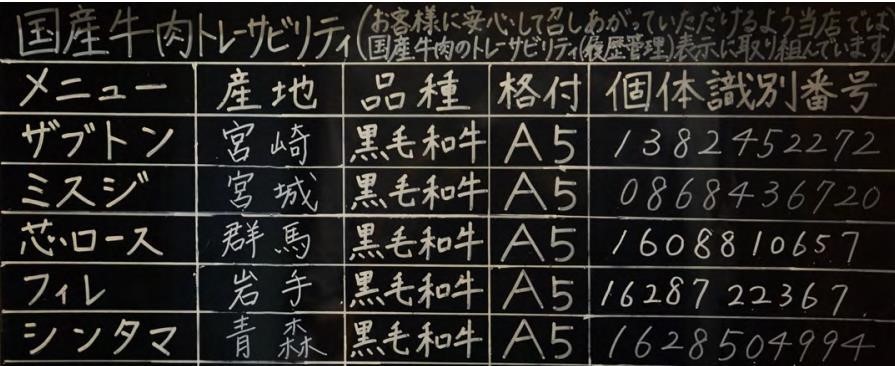 国産牛肉トレーサビリティ(お客様に安心して召しあがっていただけるよう当店では
国産牛肉のトレーサビリティ(履歴管理)表示に取り組んでいます)
メニュー 産地 品種 格付 個体識別番号
ザブトン 宮崎 黒毛和牛 A5 1382452272
ミスジ 宮城 黒毛和牛 A5 0868436720
芯ロース 群馬 黒毛和牛 A5 1608810657
フィレ 岩手 黒毛和牛 A5 1628722367
シンタマ 青森 黒毛和牛 A5 1628504994